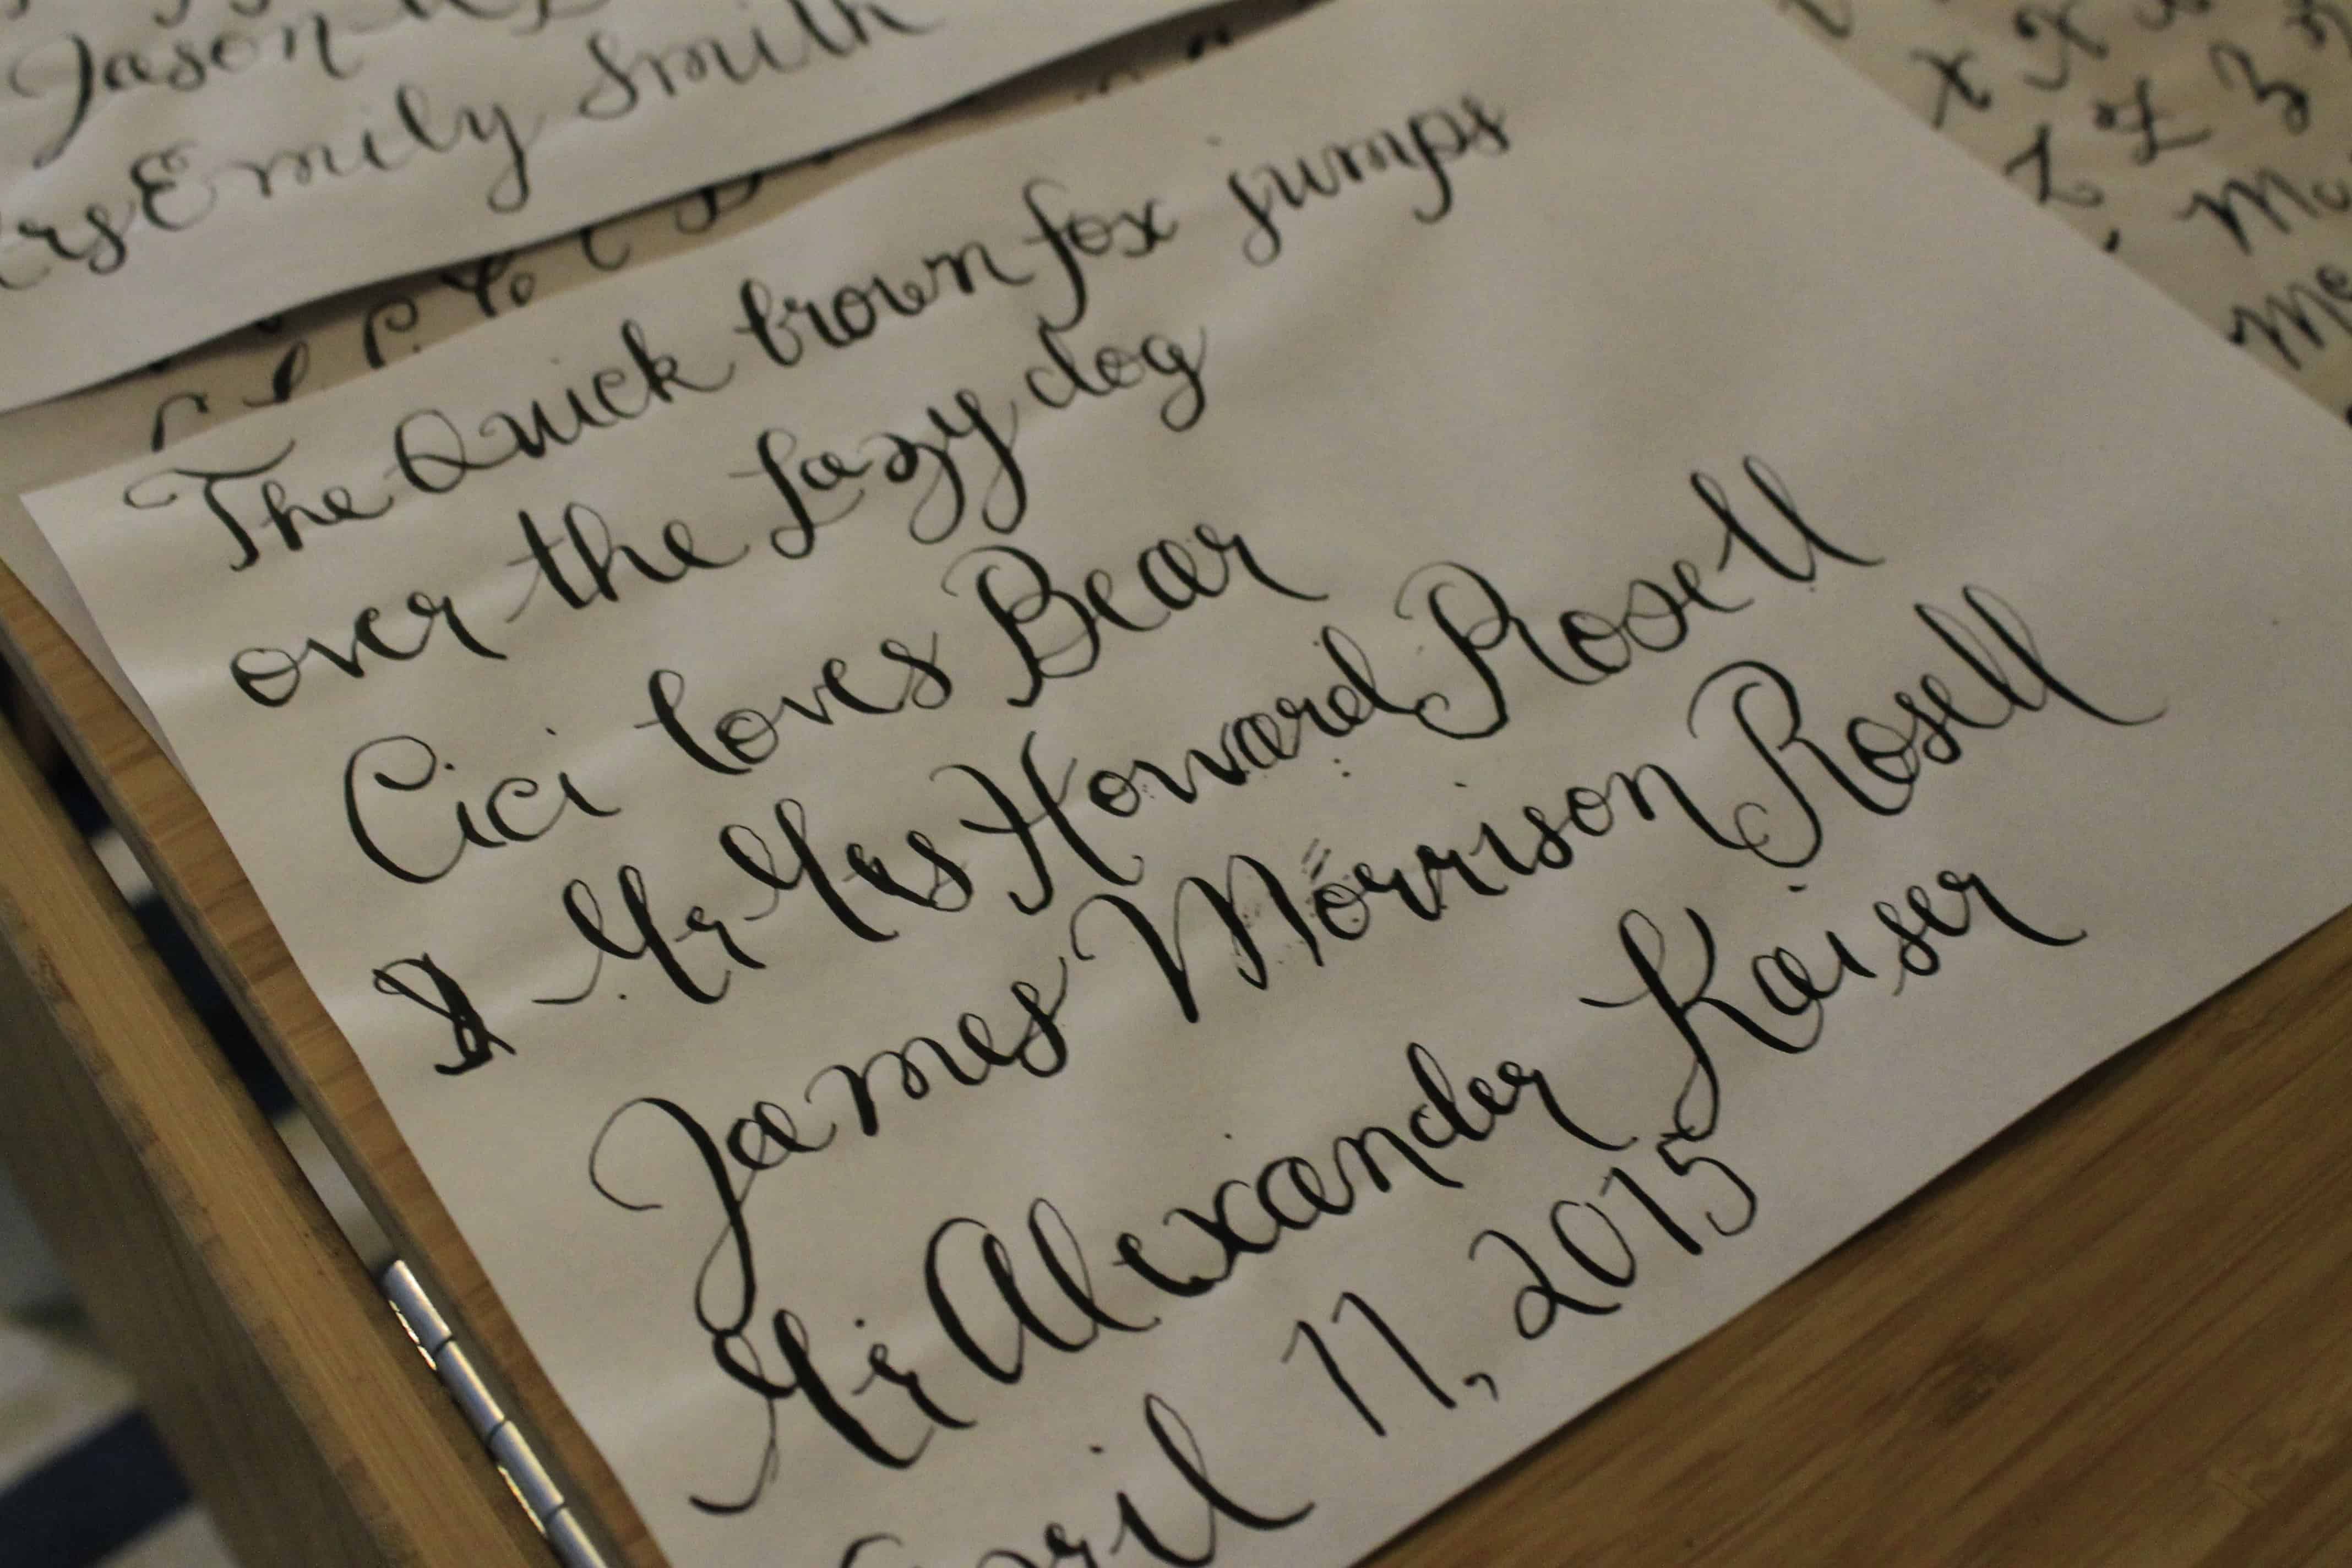 Jason
Emily Smith
The Quick brown fox jumps
over the lazy dog
Cici loves Bear
Mr Mrs Howard Rosell
James Morrison Rosell
Mr Alexander Kaiser
April 11, 2015
x X
z Z z